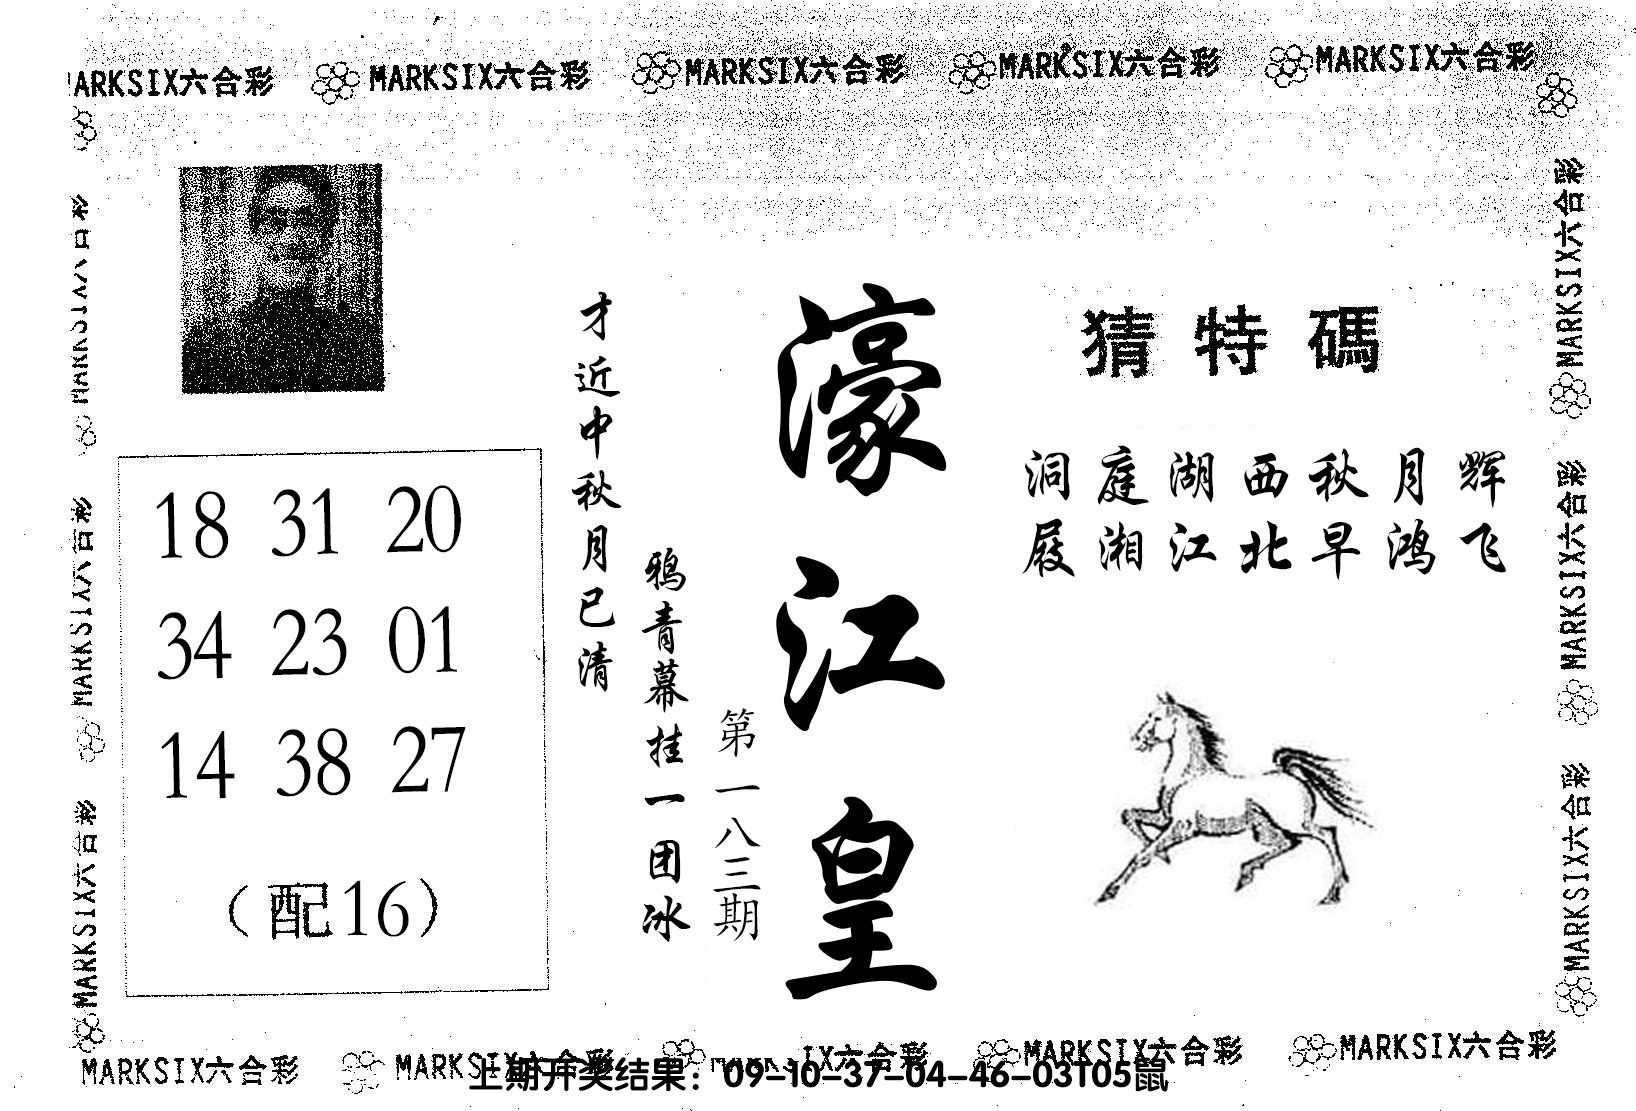 MARKSIX六合彩 MARKSIX六合彩 MARKSIX六合彩 MARKSIX六合彩 MARKSIX六合彩
MARKSIX六合彩
MARKSIX六合彩
MARKSIX六合彩
18 31 20
34 23 01
14 38 27
（配16）
才近中秋月已清
鸦青幕挂一团冰
第一八三期
濠江皇
猜特碼
洞庭湖西秋月辉
潇湘江北早鸿飞
MARKSIX六合彩
MARKSIX六合彩
MARKSIX六合彩
MARKSIX六合彩 MARKSIX六合彩 MARKSIX六合彩 MARKSIX六合彩 MARKSIX六合彩
上期开奖结果：09-10-37-04-46-03T05鼠